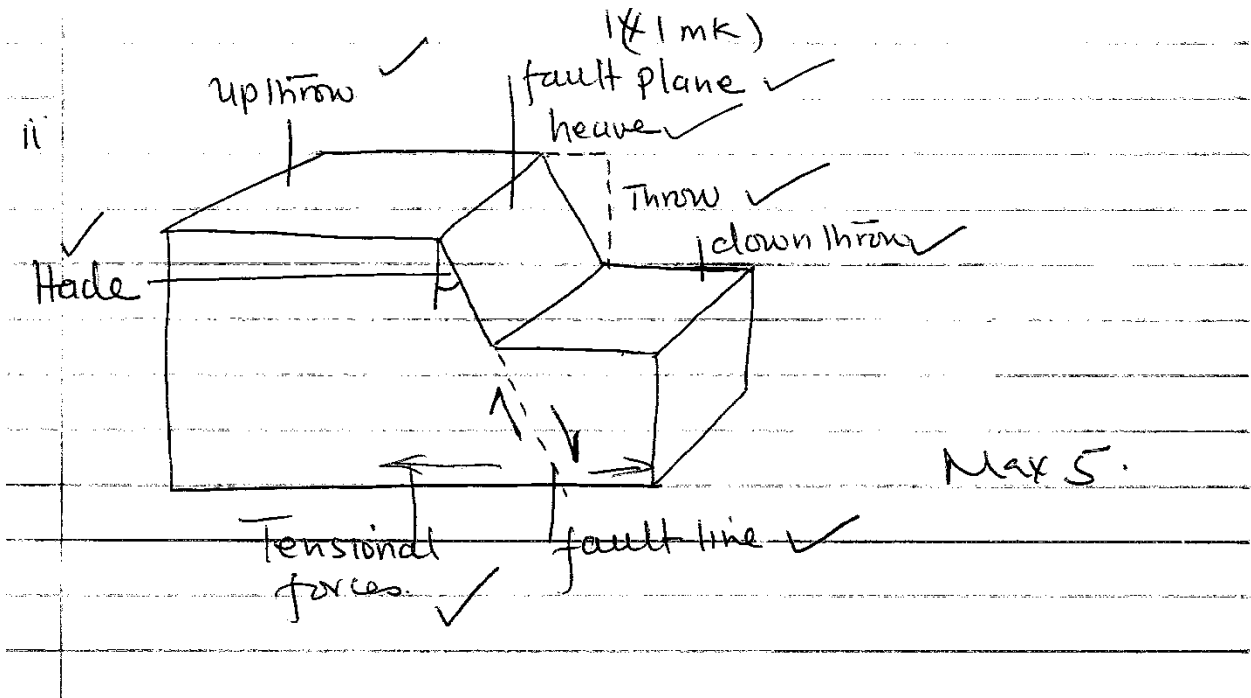 1(x1mk)
upthrow
fault plane
ii
heave
Throw
downthrow
Hade
Max 5.
Tensional
forces.
fault line